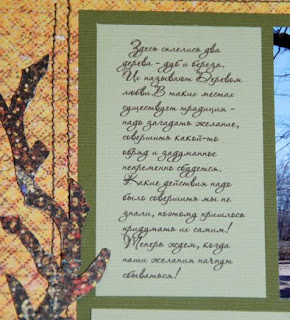 Здесь сплелись два
дерева - дуб и береза.
Их называют Деревом
любви.В таких местах
существует традиция -
надо загадать желание,
совершить какой-то
обряд и задуманное
непременно сбудется.
Какие действия надо
было совершить мы не
знали, поэтому пришлось
придумать их самим!
Теперь ждем, когда
наши желания начнут
сбываться!